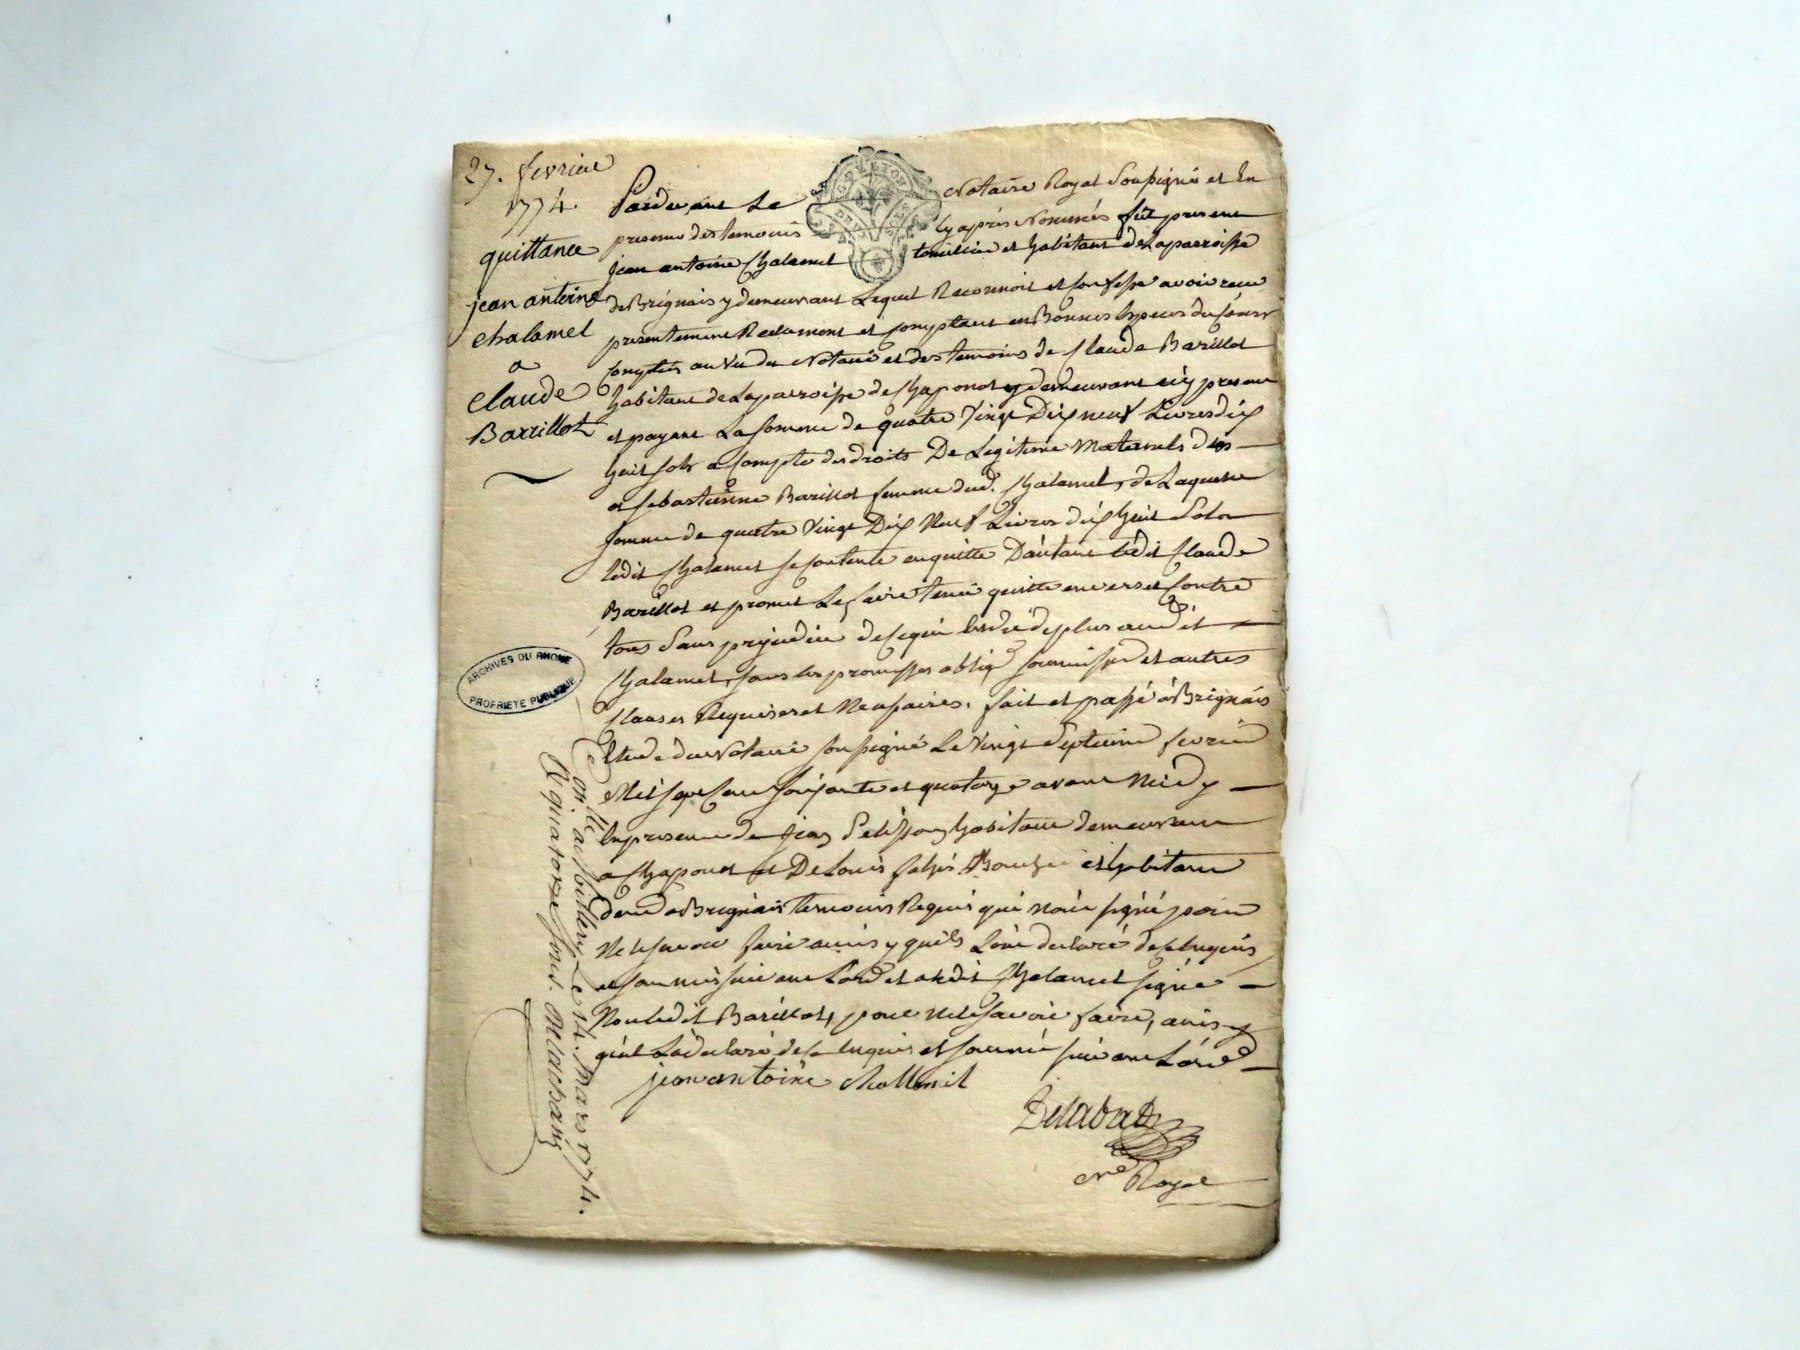 27. fevrier
1774.
quittance
jean antoine
chalamel
a
Claude
Barrillot
Pardevant Le Notaire Royal Soussigné et En
presence des temoins cy après Nommés fût present
jean antoine Chalamel et habitant de Laparroisse
de Brignais y demeurant Lequel Reconnoit et confesse avoir recu
presentement Reelement et comptant en Bonnes especes du Cours
comptés au Vu du Notaire et des temoins de Claude Barillot
habitant de Laparroisse de Chaponot y demeurant icy present
et payant La somme de quatre Vingt Dix neuf Livres dix
huit sols a compte des droits De Legitime Maternels deus
a sebastienne Barillot femme dud. Chalamel, de Laquelle
somme de quatre Vingt Dix Neuf Livres dix huit Sols
ledit Chalamel se contente en quitte Dautant ledit Claude
Barillot et promet Le faire tenir quitte envers et Contre
tous Sans prejudice de ce qui est dû de plus aud it
Chalamel, sous les promesses obligõ soumissions et autres
Clauses Requises et Necessaires. fait et passé à Brignais
Etude du Notaire soussigné Le Vingt Septieme fevrier
Mil sept Cent soixante et quatorze avant Midy
En presence de jean habitant demeurant
a Chaponot et De Louis et habitant
dud Brignais temoins Requis qui n'ont signé pour
Ne le savoir faire ainsy qu'ils L'ont declaré de ce Enquis
et sommés suivant L'ord et a ledit Chalamel signé
Non ledit Barillot, pour ne le savoir faire, ainsy
qu'il La declaré de ce Enquis et sommé suivant L'ord
jean antoine challemel
Delabat
Nre Royal
ARCHIVES DU RHONE
PROPRIETE PUBLIQUE
Con.lle Le 14. Mars 1774.
R. quatorze sous.